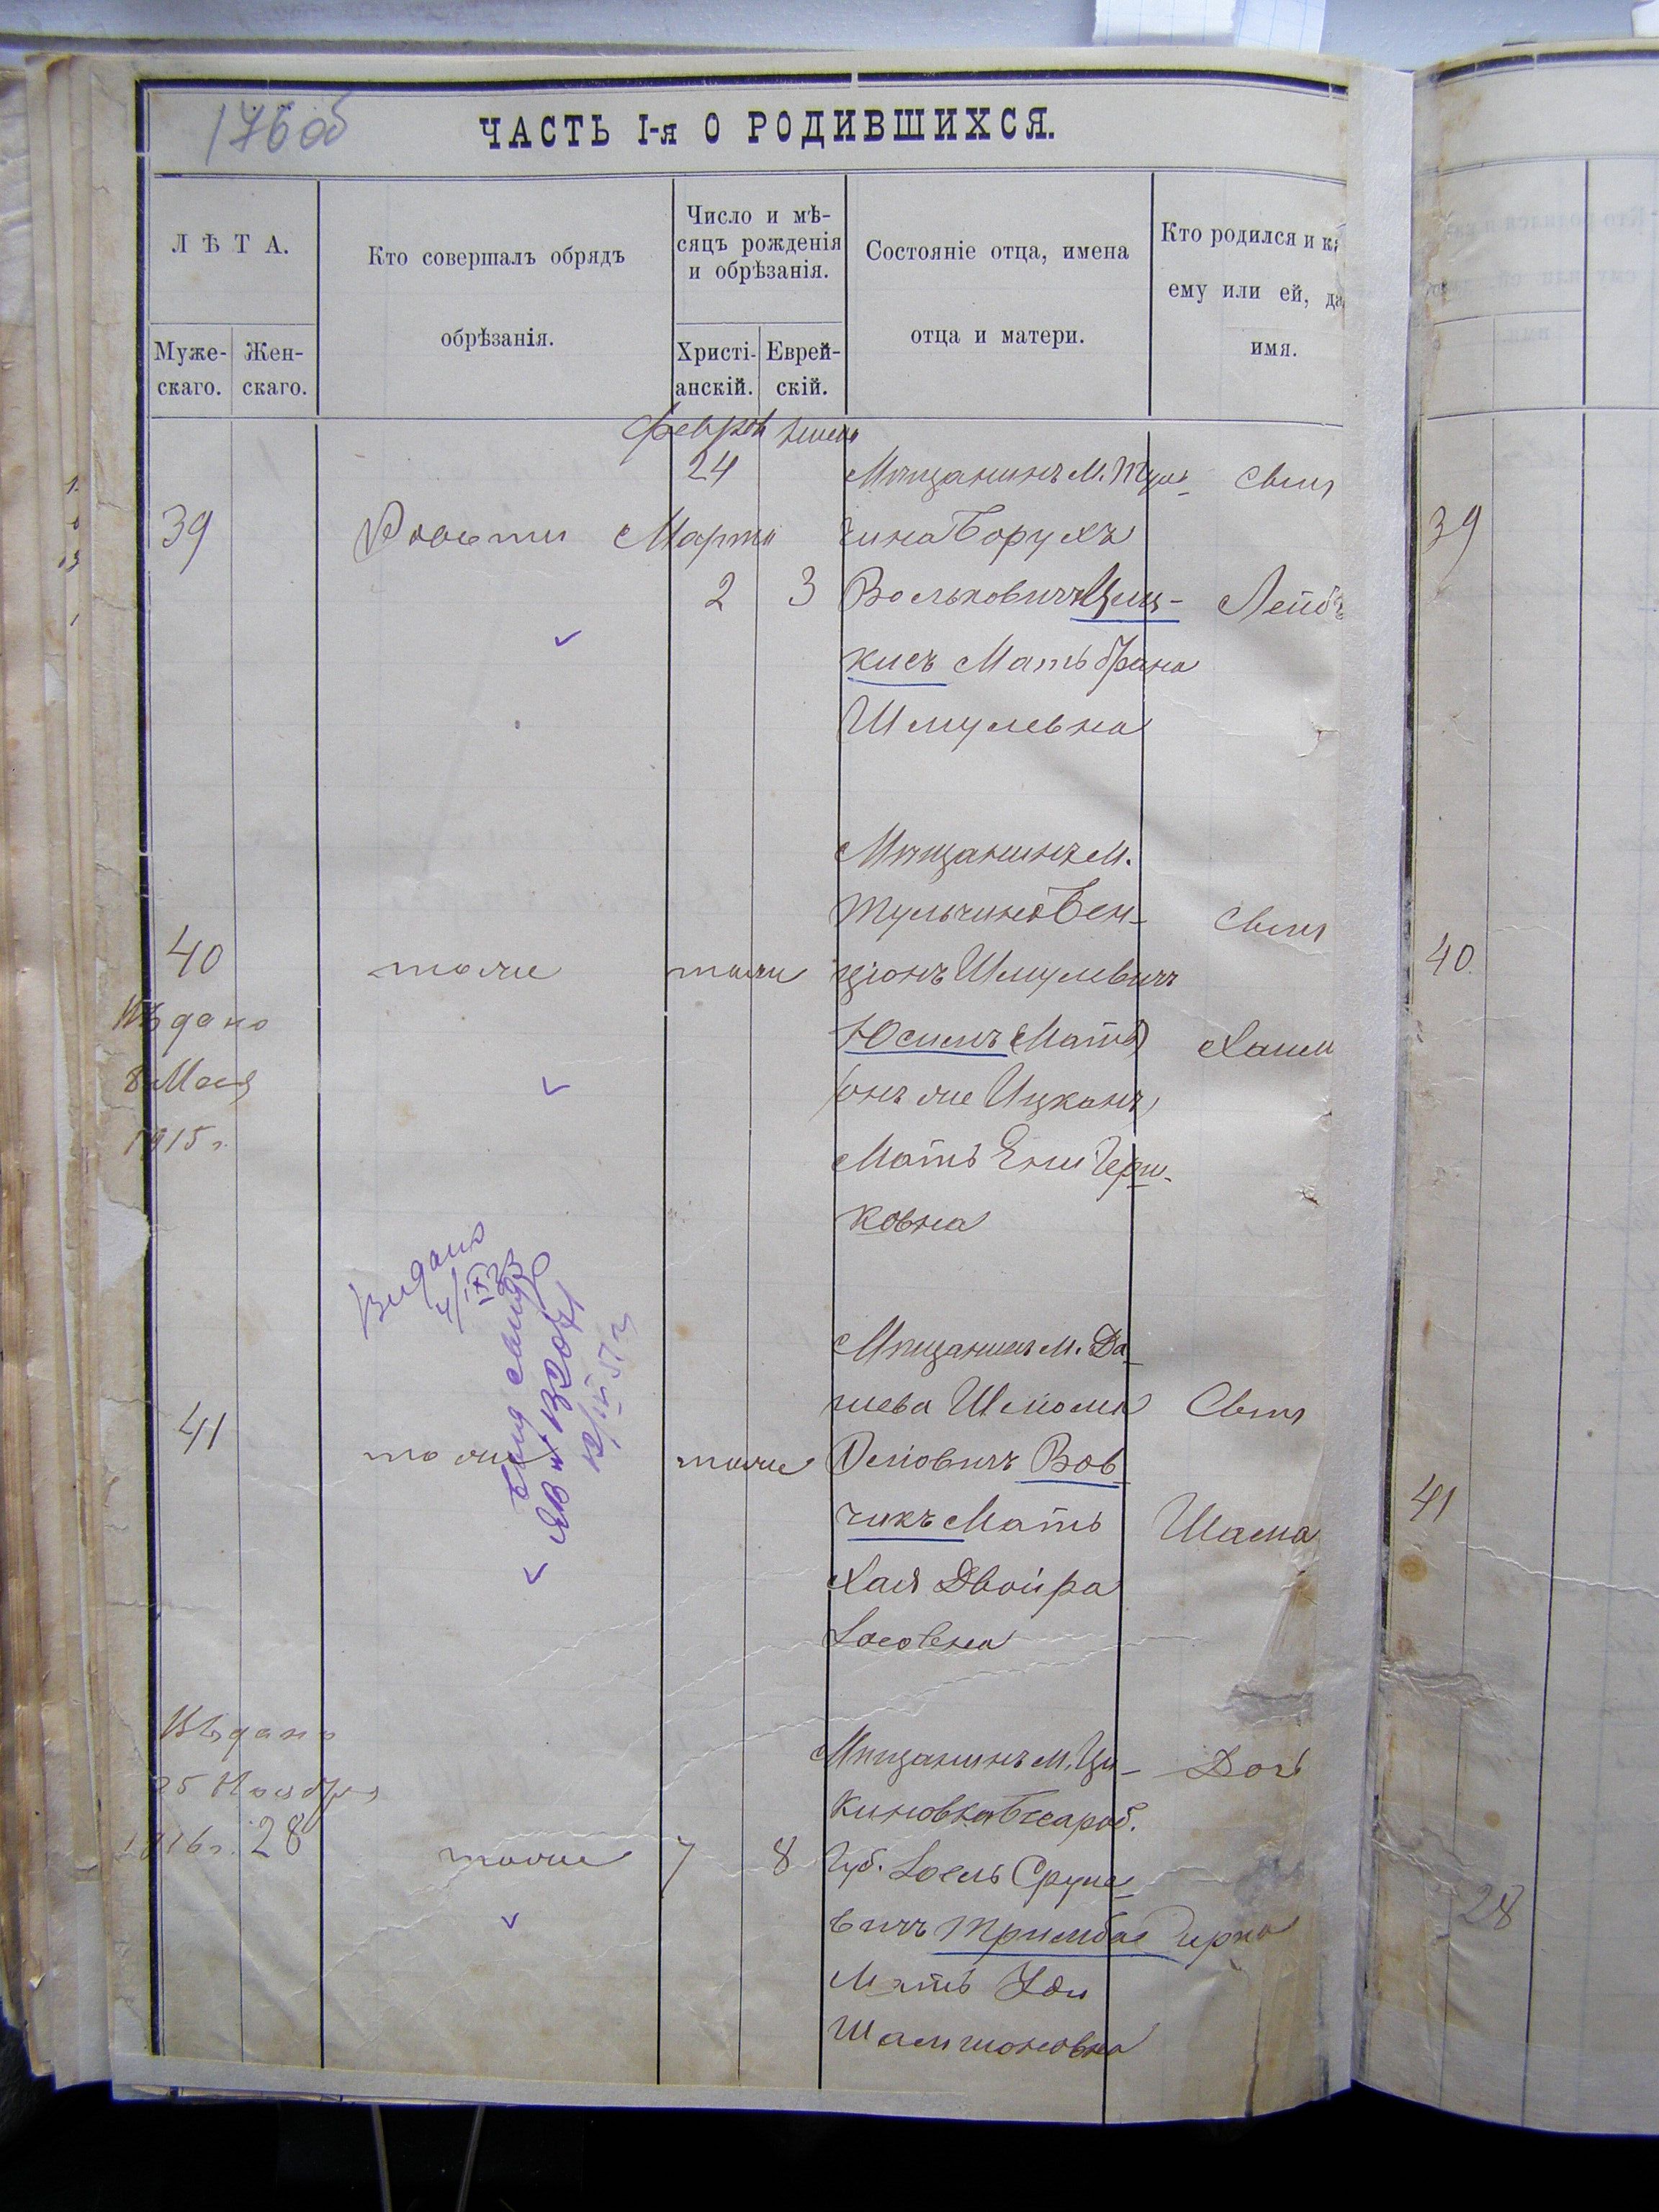 176об
ЧАСТЬ I-я О РОДИВШИХСЯ.
Л Ѣ Т А.
Муже-
скаго.
Жен-
скаго.
Кто совершалъ обрядъ
обрѣзанія.
Число и мѣ-
сяцъ рожденія
и обрѣзанія.
Христі-
анскій.
Еврей-
скій.
Состояніе отца, имена
отца и матери.
Кто родился и ка
ему или ей, да
имя.
24
Марта
39
2
3
Мѣщанинъ М. Туль-
чина Борухъ
Вольковичъ Циц-
кисъ Мать Брана
Шмулевна
Сынъ
Лейбъ
40
Выдано
8 Мая
1915 г.
тоже
тоже
Мѣщанинъ М.
Тульчина Бен-
ціонъ Шмулевичъ
Юсимъ (Мать)
(онъ же Ицканъ)
Мать Ени Герш-
ковна
Сынъ
Хаим
Выдано
4/IX 23
41
тоже
тоже
Мѣщанинъ М. Да
шева Шлиома
Осіовичъ Вов
чикъ Мать
Хая Двойра
Іосовна
Сынъ
Шама
Выдано
25 Ноября
1916 г.
28
тоже
7
8
Мѣщанинъ М. Ци-
киновка Бесараб.
Губ. Іосль Сруле
вичъ Тримбач
Мать Хои
Шамшоновна
Дочь
39
40
41
28